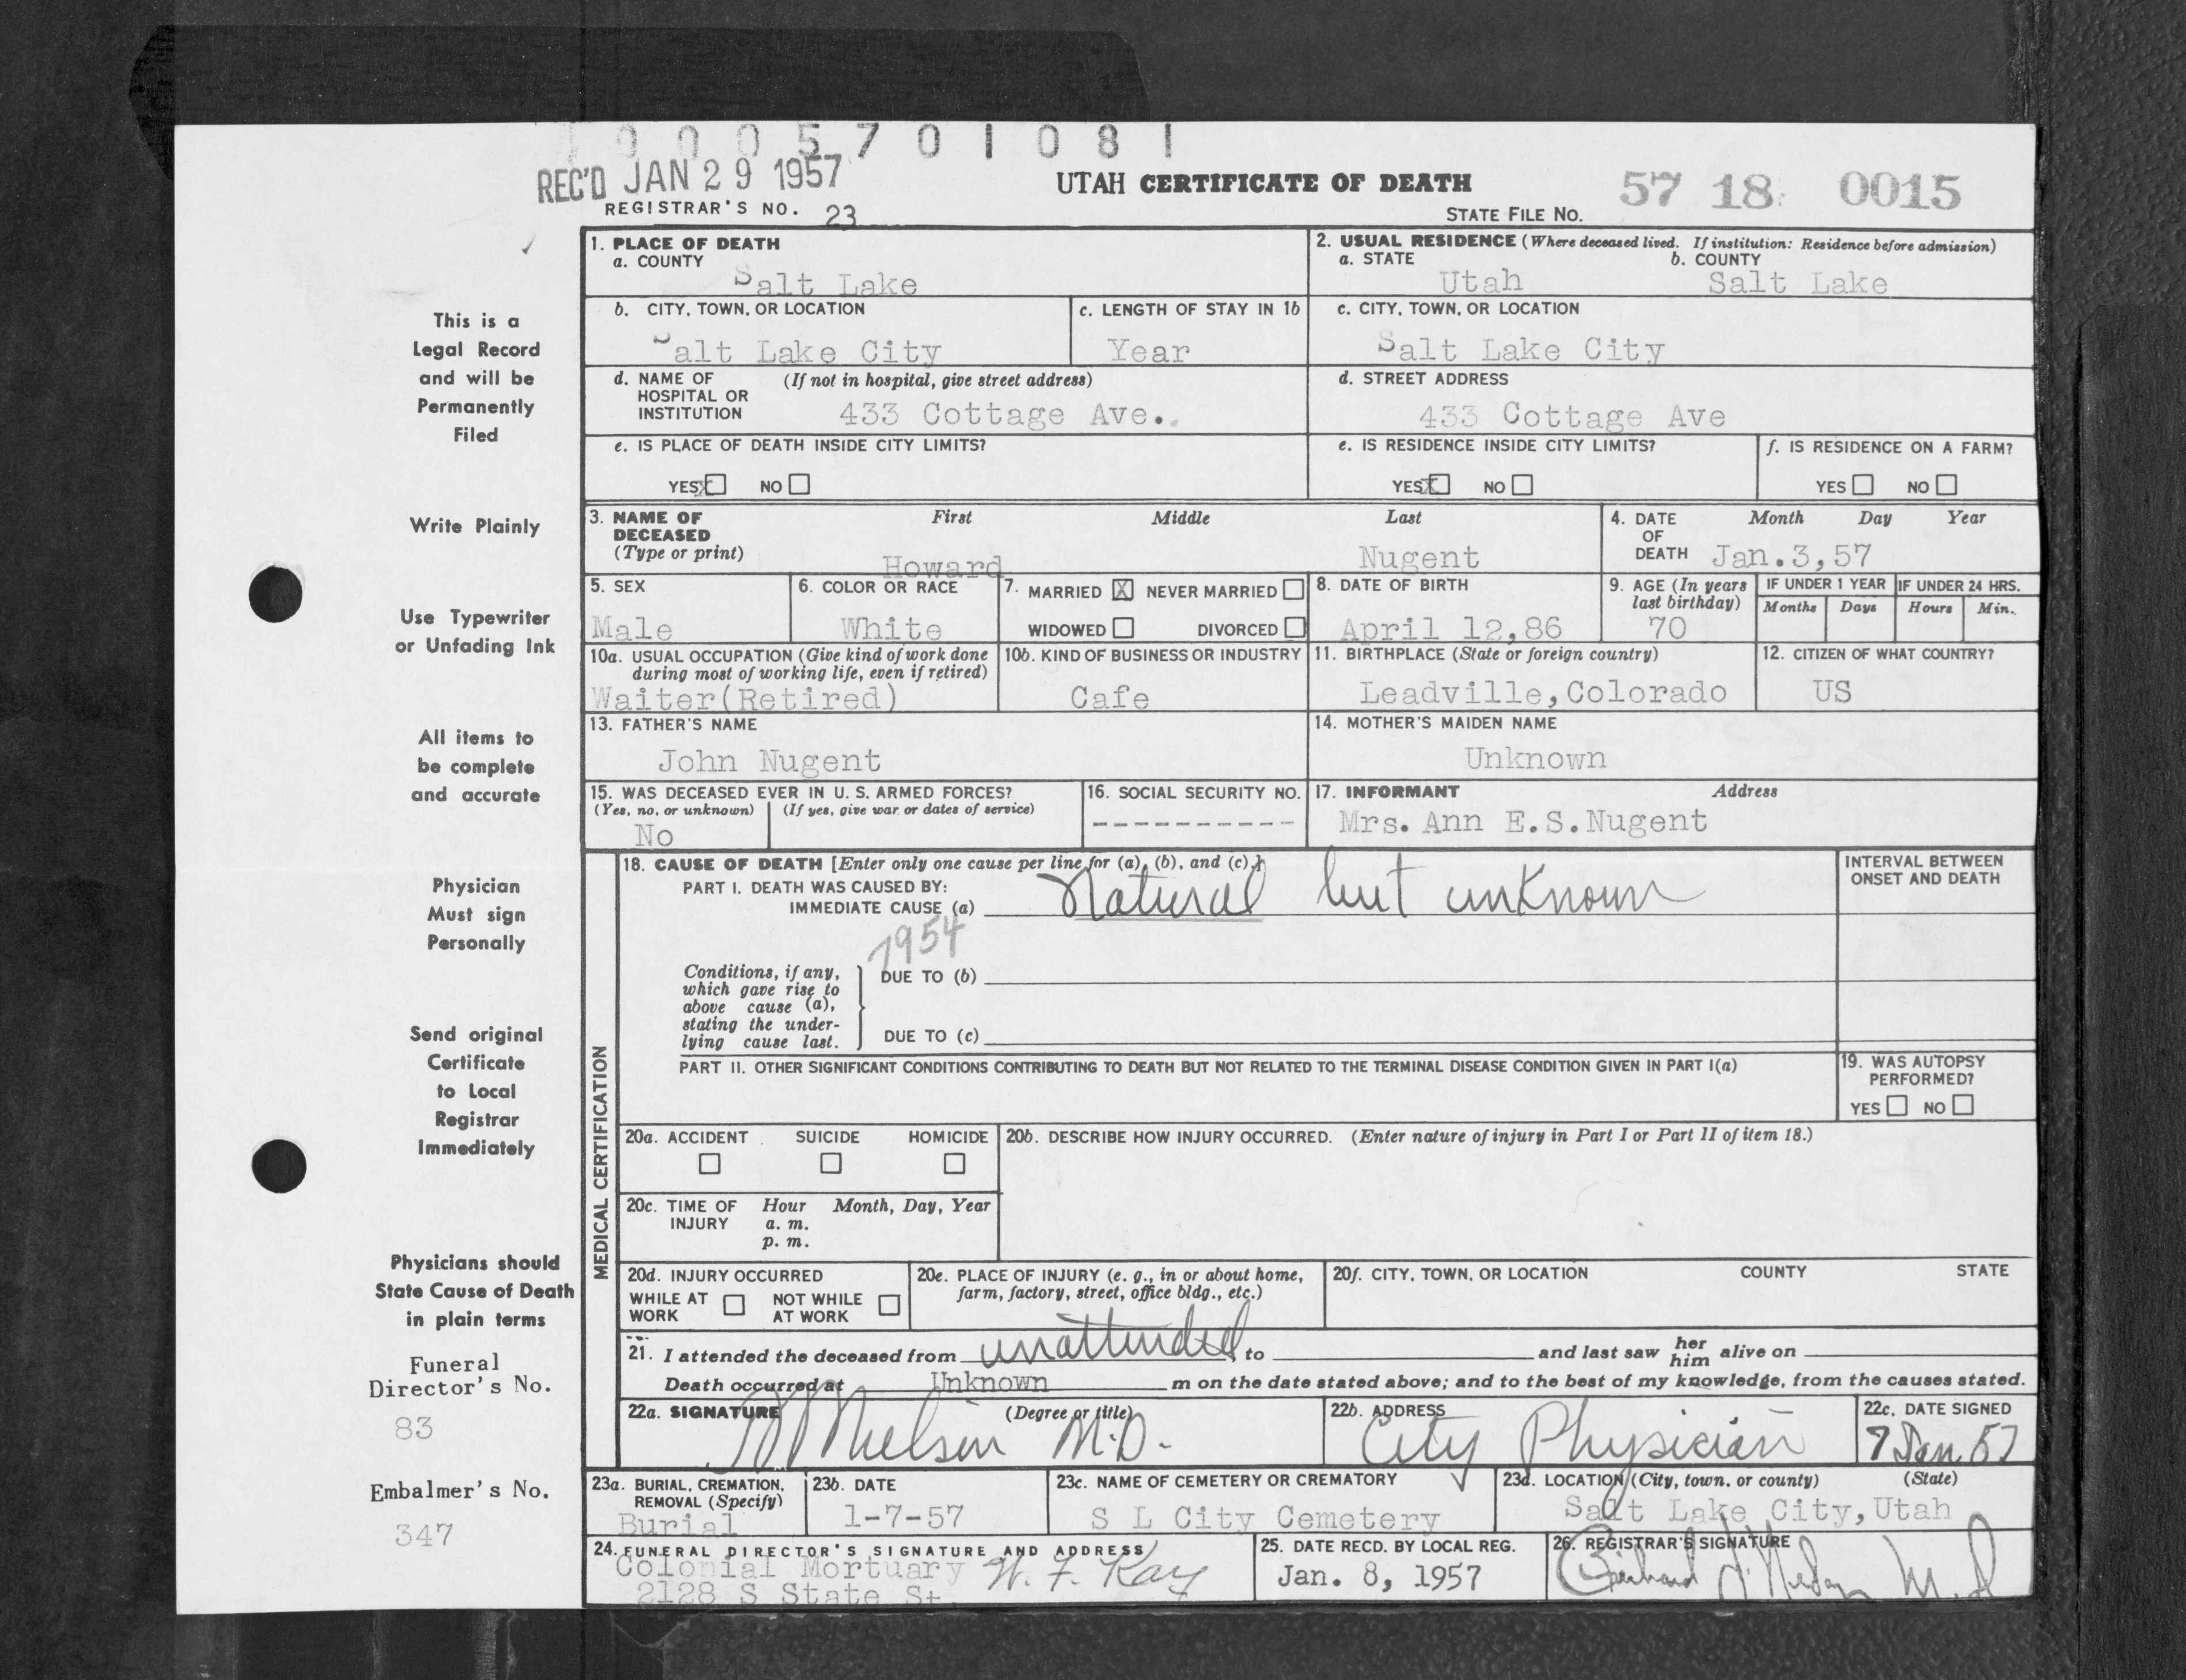 1 9 0 0 5 7 0 1 0 8 1
REC'D JAN 29 1957
UTAH CERTIFICATE OF DEATH
57 18 0015
REGISTRAR'S NO. 23
STATE FILE NO.
This is a
Legal Record
and will be
Permanently
Filed
Write Plainly
Use Typewriter
or Unfading Ink
All items to
be complete
and accurate
Physician
Must sign
Personally
Send original
Certificate
to Local
Registrar
Immediately
Physicians should
State Cause of Death
in plain terms
Funeral
Director's No.
83
Embalmer's No.
347
1. PLACE OF DEATH
a. COUNTY
Salt Lake
2. USUAL RESIDENCE (Where deceased lived. If institution: Residence before admission)
a. STATE b. COUNTY
Utah Salt Lake
b. CITY, TOWN, OR LOCATION
Salt Lake City
c. LENGTH OF STAY IN 1b
Year
c. CITY, TOWN, OR LOCATION
Salt Lake City
d. NAME OF (If not in hospital, give street address)
HOSPITAL OR
INSTITUTION 433 Cottage Ave.
d. STREET ADDRESS
433 Cottage Ave
e. IS PLACE OF DEATH INSIDE CITY LIMITS?
YES X NO
e. IS RESIDENCE INSIDE CITY LIMITS?
YES X NO
f. IS RESIDENCE ON A FARM?
YES NO
3. NAME OF First Middle Last
DECEASED
(Type or print) Howard Nugent
4. DATE Month Day Year
OF
DEATH Jan.3,57
5. SEX
Male
6. COLOR OR RACE
White
7. MARRIED X NEVER MARRIED
WIDOWED DIVORCED
8. DATE OF BIRTH
April 12,86
9. AGE (In years
last birthday)
70
IF UNDER 1 YEAR IF UNDER 24 HRS.
Months Days Hours Min.
10a. USUAL OCCUPATION (Give kind of work done
during most of working life, even if retired)
Waiter(Retired)
10b. KIND OF BUSINESS OR INDUSTRY
Cafe
11. BIRTHPLACE (State or foreign country)
Leadville,Colorado
12. CITIZEN OF WHAT COUNTRY?
US
13. FATHER'S NAME
John Nugent
14. MOTHER'S MAIDEN NAME
Unknown
15. WAS DECEASED EVER IN U. S. ARMED FORCES?
(Yes, no, or unknown) (If yes, give war or dates of service)
No
16. SOCIAL SECURITY NO.
----------
17. INFORMANT Address
Mrs. Ann E.S.Nugent
MEDICAL CERTIFICATION
18. CAUSE OF DEATH [Enter only one cause per line for (a), (b), and (c).]
PART I. DEATH WAS CAUSED BY:
IMMEDIATE CAUSE (a) Natural but unknown
INTERVAL BETWEEN
ONSET AND DEATH
7954
Conditions, if any,
which gave rise to
above cause (a),
stating the under-
lying cause last.
DUE TO (b)
DUE TO (c)
PART II. OTHER SIGNIFICANT CONDITIONS CONTRIBUTING TO DEATH BUT NOT RELATED TO THE TERMINAL DISEASE CONDITION GIVEN IN PART I(a)
19. WAS AUTOPSY
PERFORMED?
YES NO
20a. ACCIDENT SUICIDE HOMICIDE
20b. DESCRIBE HOW INJURY OCCURRED. (Enter nature of injury in Part I or Part II of item 18.)
20c. TIME OF Hour Month, Day, Year
INJURY a. m.
p. m.
20d. INJURY OCCURRED
WHILE AT NOT WHILE
WORK AT WORK
20e. PLACE OF INJURY (e. g., in or about home,
farm, factory, street, office bldg., etc.)
20f. CITY, TOWN, OR LOCATION COUNTY STATE
21. I attended the deceased from unattended to and last saw her him alive on
Death occurred at Unknown m on the date stated above; and to the best of my knowledge, from the causes stated.
22a. SIGNATURE (Degree or title)
Nielsen M.D.
22b. ADDRESS
City Physician
22c. DATE SIGNED
7 Jan 57
23a. BURIAL, CREMATION,
REMOVAL (Specify)
Burial
23b. DATE
1-7-57
23c. NAME OF CEMETERY OR CREMATORY
S L City Cemetery
23d. LOCATION (City, town, or county) (State)
Salt Lake City,Utah
24. FUNERAL DIRECTOR'S SIGNATURE AND ADDRESS
Colonial Mortuary W. F. Kay
2128 S State St
25. DATE RECD. BY LOCAL REG.
Jan. 8, 1957
26. REGISTRAR'S SIGNATURE
M.D